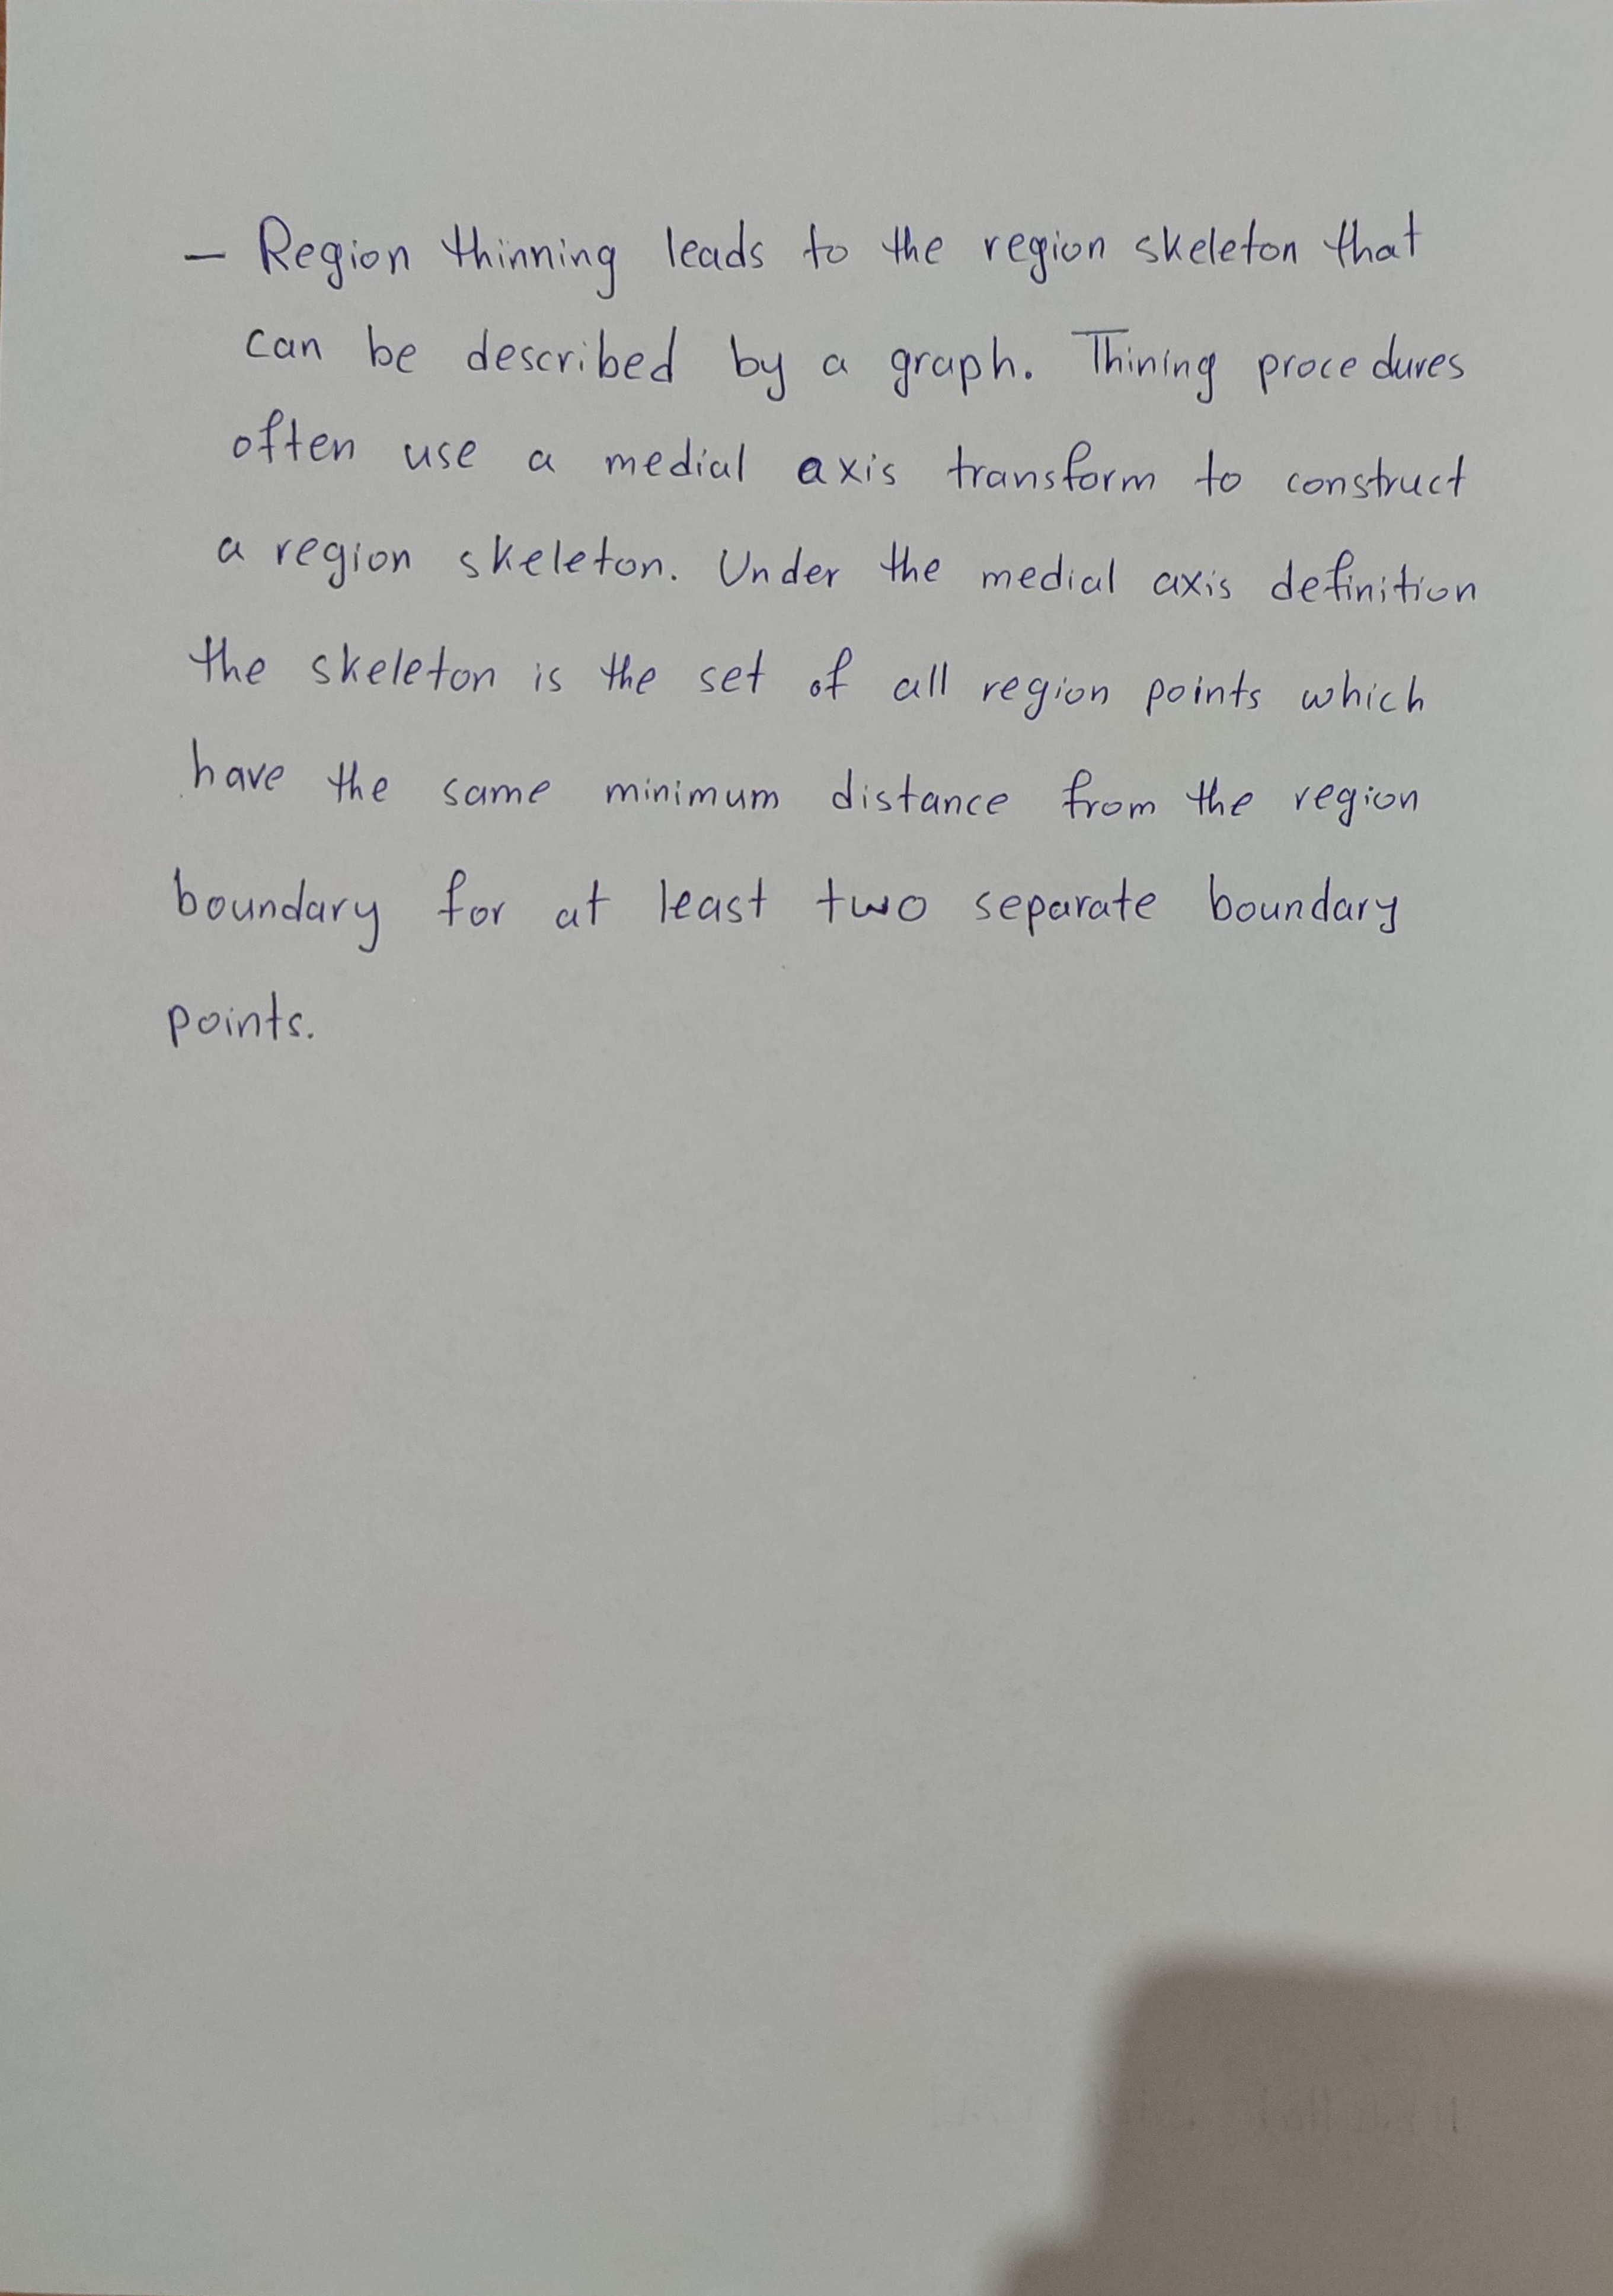 – Region thinning leads to the region skeleton that
can be described by a graph. Thining procedures
often use a medial axis transform to construct
a region skeleton. Under the medial axis definition
the skeleton is the set of all region points which
have the same minimum distance from the region
boundary for at least two separate boundary
points.